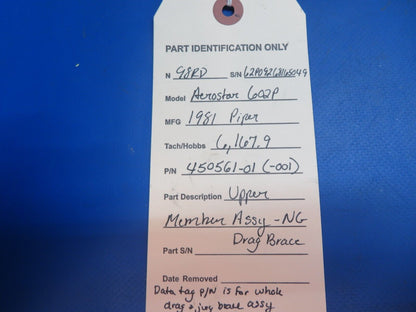 PART IDENTIFICATION ONLY
N 98RD S/N 62P082628165049
Model Aerostar 602P
MFG 1981 Piper
Tach/Hobbs 6,167.9
P/N 450561-01 (-001)
Part Description Upper
Member Assy - NG
Drag Brace
Part S/N
Date Removed
Data tag P/N is for whole
drag & jury brace assy